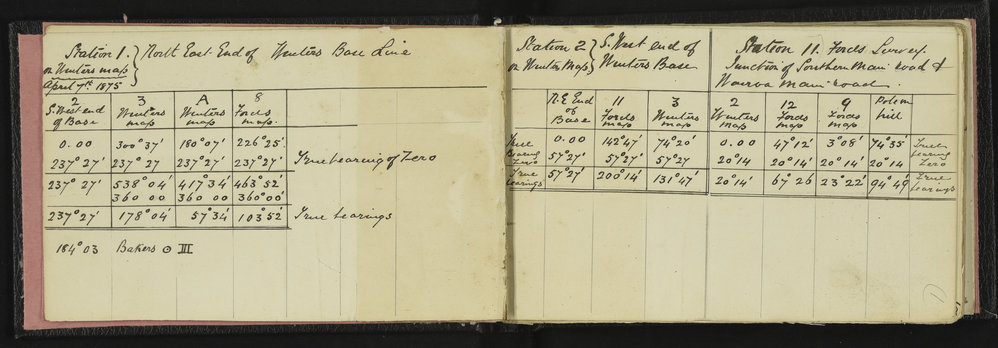 Station 1. } North East End of Winters Base Line
on Winters map
April 7th 1875
2 3 A 8
S. West end Winters Winters Fords
of Base map map map.
0.00 300°37' 180°07' 226°25'
237°27' 237°27 237°27' 237°27' True bearing of Zero
237°27' 538°04' 417°34' 463°52'
360 00 360 00 360°00'
237°27' 178°04' 57°34' 103°52' True bearings
184°03 Bakers ⊙ III
Station 2 } S. West end of
on Winters Map } Winters Base
N.E End 11 3
of Fords Winters
Base map map
0.00 142°47' 74°20'
True bearing Zero 57°27' 57°27' 57°27
True bearings 57°27' 200°14' 131°47'
Station 11. Fords Survey.
Junction of Southern Main road &
Main road.
2 12 9 Potom
Winters Fords Fords hill
map map map
0.00 47°12' 3°08' 74°35' True bearing Zero
20°14 20°14' 20°14' 20°14
20°14' 67°26 23°22' 94°49' True bearings